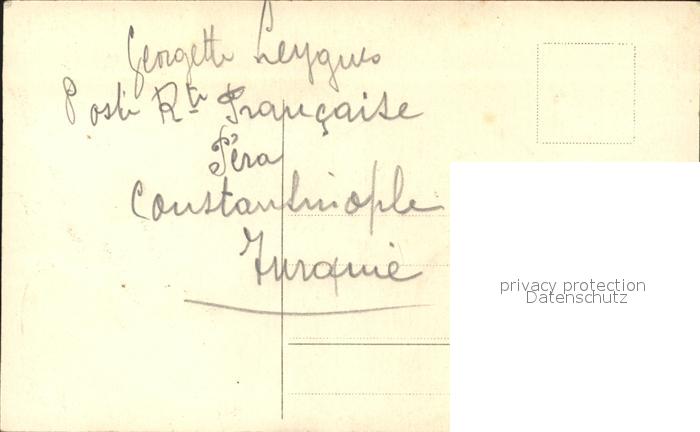 Georgette Leygues
Poste Rte Française
Péra
Constantinople
Turquie
privacy protection
Datenschutz